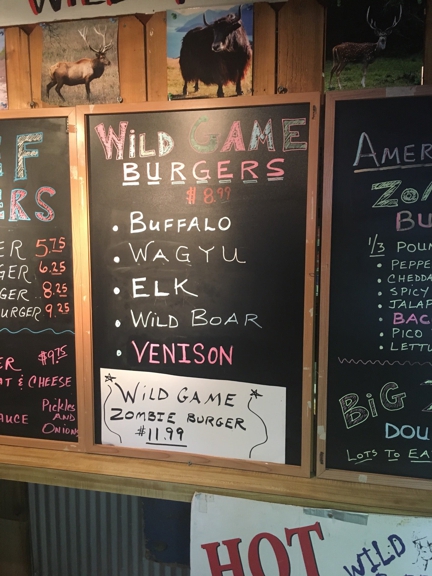 WILD
F
ERS
ER 5.75
GER 6.25
GER 8.25
BURGER 9.25
ER $9.75
T & CHEESE
Pickles
AND
Onion
AUCE
WILD GAME
BURGERS
$8.99
• BUFFALO
• WAGYU
• ELK
• WILD BOAR
• VENISON
WILD GAME
ZOMBIE BURGER
$11.99
AMER
ZO
BU
1/3 POUN
• PEPPE
• CHEDDA
• SPICY
• JALAP
• BAC
• PICO
• LETTU
BiG
DOU
LOTS TO EA
HOT
WILD